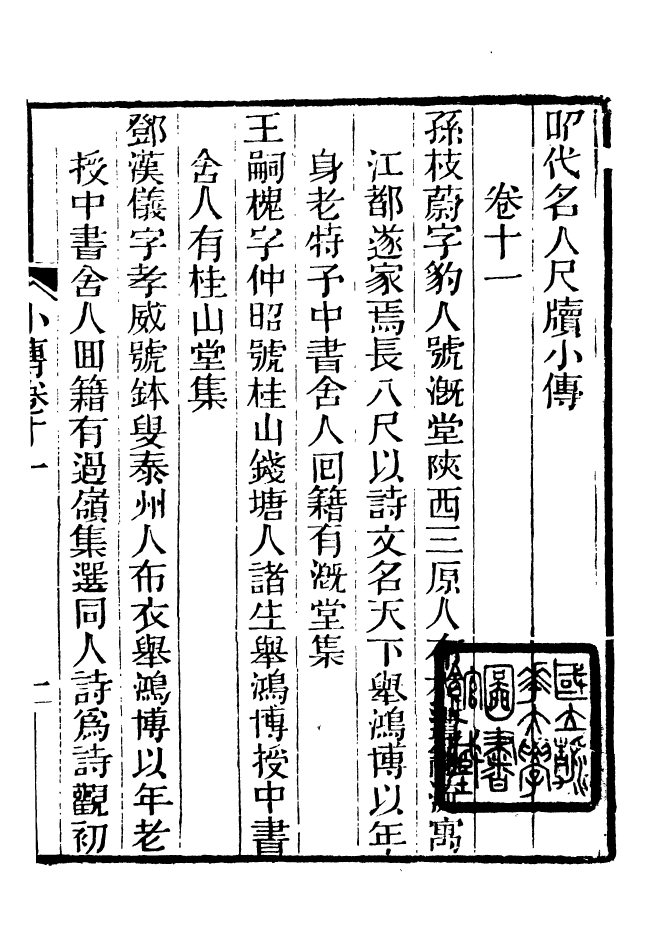 昭代名人尺牘小傳
卷十一
孫枝蔚字豹人號漑堂陝西三原人布流寓
江都遂家焉長八尺以詩文名天下舉鴻博以年
身老特予中書舍人回籍有漑堂集
王嗣槐字仲昭號桂山錢塘人諸生舉鴻博授中書
舍人有桂山堂集
鄧漢儀字孝威號鉢叟泰州人布衣舉鴻博以年老
授中書舍人囬籍有過嶺集選同人詩爲詩觀初
小傳卷十一
二
國立清
華大學
圖書
館藏